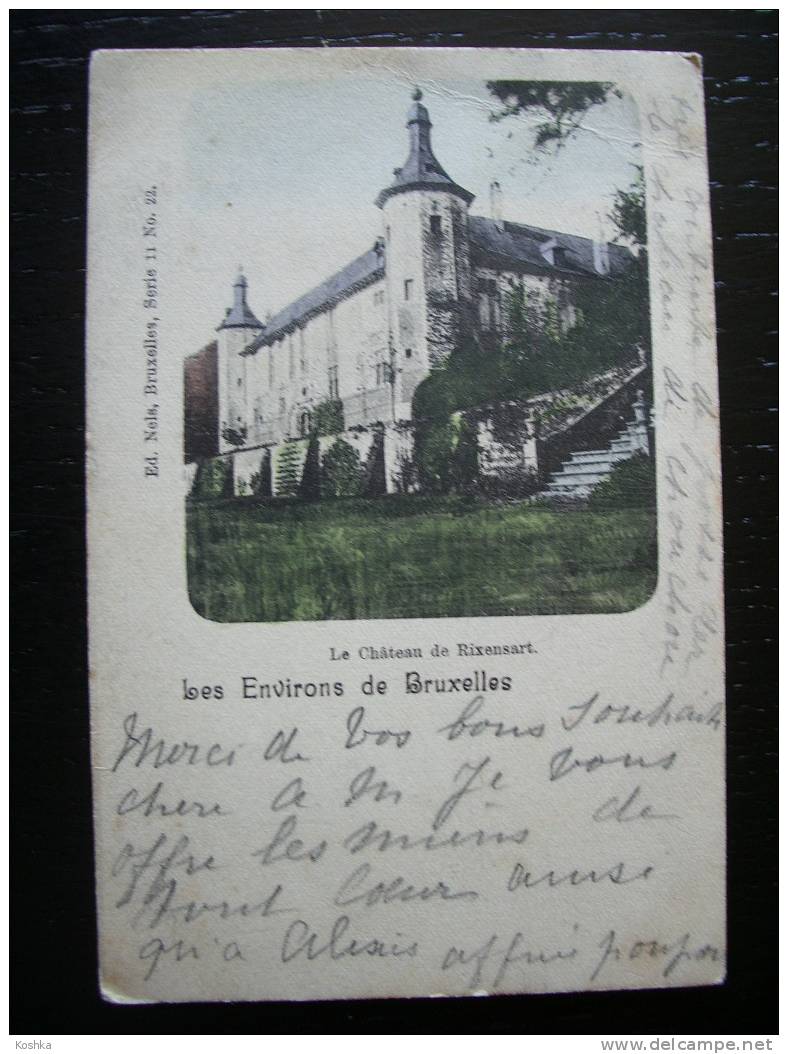 Ed. Nels, Bruxelles, Serie 11 No. 22.
Le Château de Rixensart.
Les Environs de Bruxelles
Merci de Vos bons Souhaits
chere A M Je vous
offre les miens de
tout Cœur ainsi
qu'a Alexis
de
chouchou
Koshka
www.delcampe.net